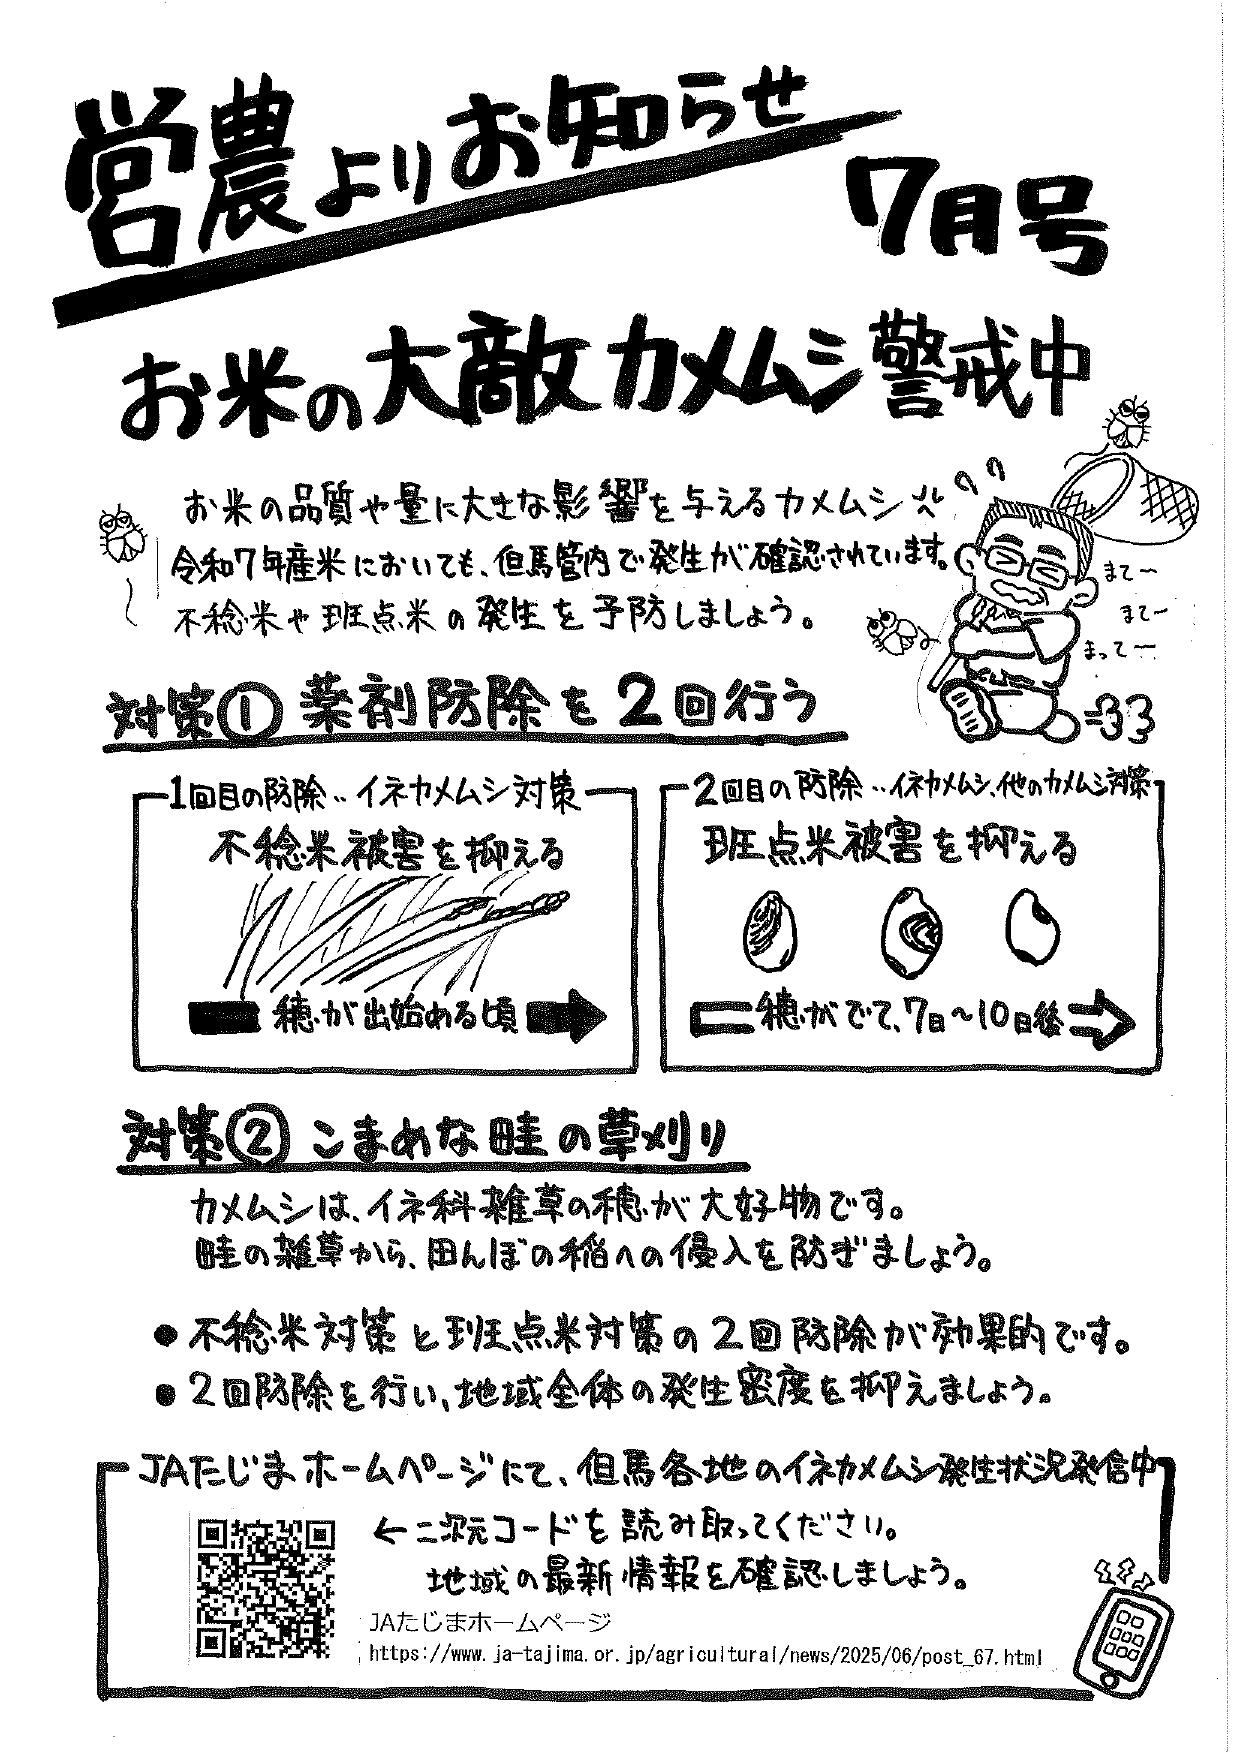 営農よりお知らせ
7月号
お米の大敵カメムシ警戒中
お米の品質や量に大きな影響を与えるカメムシ
令和7年産米においても、但馬管内で発生が確認されています。
不稔米や斑点米の発生を予防しましょう。
まて〜
まてー
まってー
対策① 薬剤防除を2回行う
1回目の防除‥イネカメムシ対策
不稔米被害を抑える
穂が出始める頃
2回目の防除‥イネカメムシ、他のカメムシ対策
斑点米被害を抑える
穂がでて、7日〜10日後
対策② こまめな畦の草刈り
カメムシは、イネ科雑草の穂が大好物です。
畦の雑草から、田んぼの稲への侵入を防ぎましょう。
● 不稔米対策と斑点米対策の2回防除が効果的です。
● 2回防除を行い、地域全体の発生密度を抑えましょう。
JAたじまホームページにて、但馬各地のイネカメムシ発生状況発信中
←二次元コードを読み取ってください。
地域の最新情報を確認しましょう。
JAたじまホームページ
https://www.ja-tajima.or.jp/agricultural/news/2025/06/post_67.html